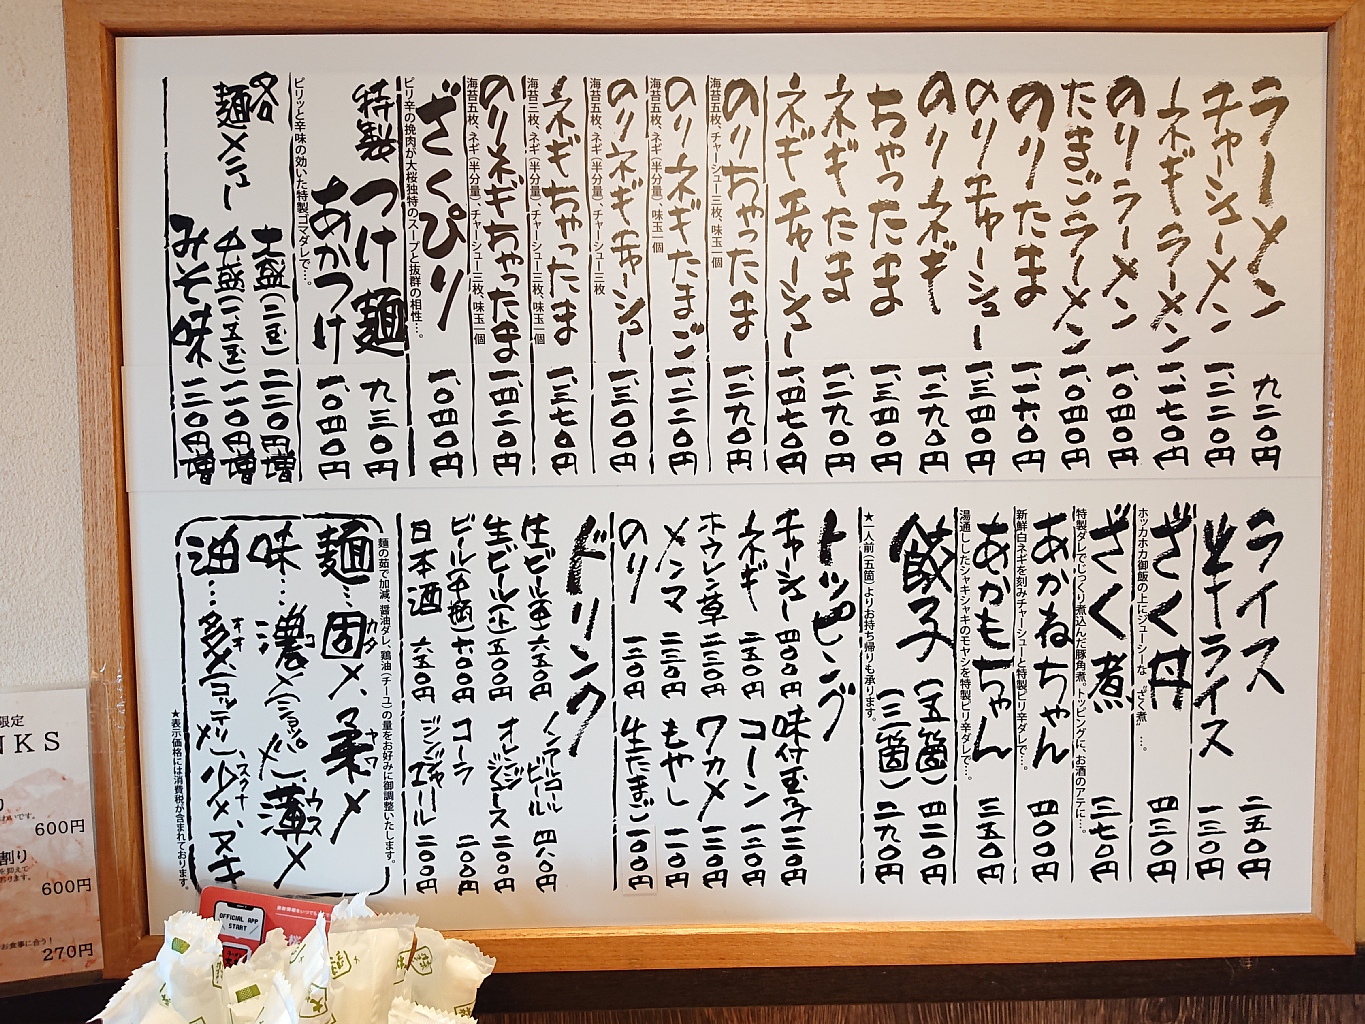 ラーメン 九二〇円
チャーシューメン 一、二二〇円
ネギラーメン 一、一七〇円
のりラーメン 一、〇四〇円
たまごラーメン 一、〇四〇円
のりたま 一、一六〇円
のりチャーシュー 一、三四〇円
のりネギ 一、二九〇円
ちゃったま 一、三四〇円
ネギたま 一、二九〇円
ネギチャーシュー 一、四七〇円
のりちゃったま 一、二九〇円
海苔五枚、チャーシュー三枚、味玉一個
のりネギたまご 一、三二〇円
海苔五枚、ネギ(半分量)、味玉一個
のりネギチャーシュー 一、三〇〇円
海苔五枚、ネギ(半分量)、チャーシュー三枚
ネギちゃったま 一、三七〇円
海苔三枚、ネギ(半分量)、チャーシュー三枚、味玉一個
のりネギちゃったま 一、四二〇円
海苔五枚、ネギ(半分量)、チャーシュー三枚、味玉一個
ざくぴり 一、〇四〇円
ピリ辛の挽肉が大桜独特のスープと抜群の相性…。
特製つけ麺 九三〇円
あかつけ 一、〇四〇円
ピリッと辛味の効いた特製ゴマダレで…。
各麺メニュー 大盛(二玉) 二二〇円増
中盛(一・五玉) 一一〇円増
みそ味 一三〇円増
ライス 二五〇円
半ライス 一三〇円
ざく丼 四三〇円
ホッカホカ御飯の上にジューシーな“ざく煮”…。
ざく煮 三七〇円
特製ダレでじっくり煮込んだ豚角煮。トッピングに、お酒のアテに…。
あかねちゃん 四〇〇円
新鮮白ネギを刻みチャーシューと特製ピリ辛ダレで…。
あかもちゃん 三五〇円
湯通ししたシャキシャキのモヤシを特製ピリ辛ダレで…。
餃子(五箇) 四二〇円
(三箇) 二九〇円
★一人前(五箇)よりお持ち帰りも承ります。
トッピング
チャーシュー 四〇〇円
味付玉子 一三〇円
ネギ 二五〇円
コーン 一三〇円
ホウレン草 二三〇円
ワカメ 一三〇円
メンマ 二三〇円
もやし 一一〇円
のり 一三〇円
生たまご 一〇〇円
ドリンク
生ビール(中) 六五〇円
ノンアルコールビール 四八〇円
生ビール(小) 五〇〇円
オレンジジュース 二〇〇円
ビール(中瓶) 六〇〇円
コーラ 二〇〇円
日本酒 六五〇円
ジンジャエール 二〇〇円
麺の茹で加減、醤油ダレ、鶏油(チーユ)の量をお好みに御調整いたします。
麺…固カタメ、柔ヤワメ
味…濃コイメ(ショッパメ)、薄ウスメ
油…多オオメ(コッテリメ)、少スクナメ、ヌキ
★表示価格には消費税が含まれております。
限定
NKS
600円
割り
600円
お食事に合う!
270円
OFFICIAL APP
START